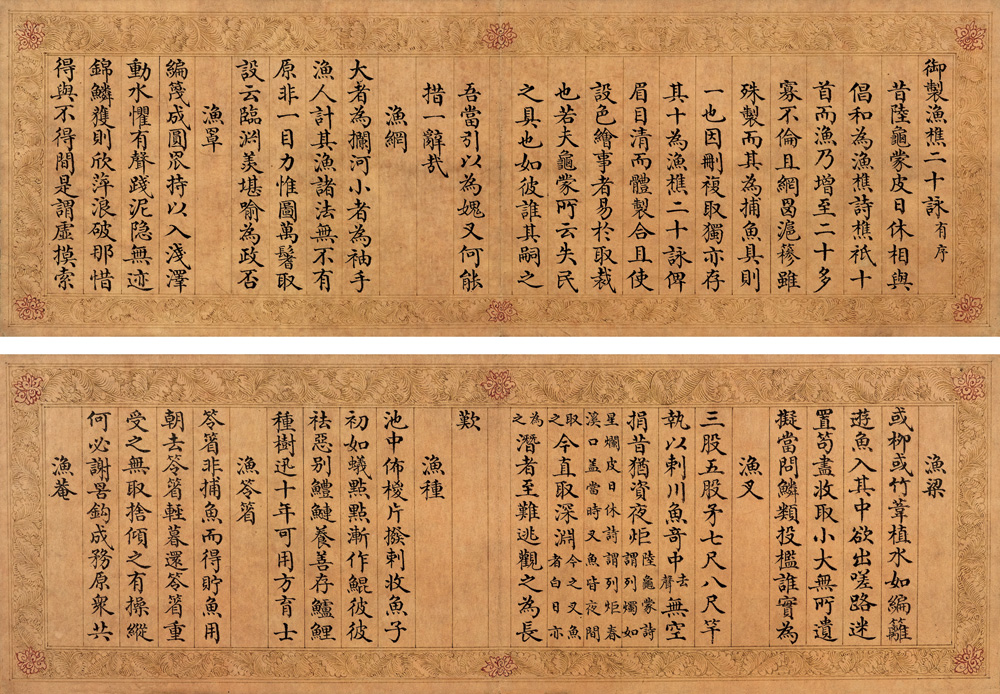 御製漁樵二十詠有序
昔陸龜蒙皮日休相與
倡和為漁樵詩樵祇十
首而漁乃增至二十多
寡不倫且網罟滬䉕雖
殊製而其為捕魚具則
一也因刪複取獨亦存
其十為漁樵二十詠俾
眉目清而體製合且使
設色繪事者易於取裁
也若夫龜蒙所云失民
之具也如彼誰其嗣之
吾當引以為媿又何能
措一辭哉
漁網
大者為攔河小者為袖手
漁人計其漁諸法無不有
原非一目力惟圖萬鬐取
設云臨淵羡堪喻為政否
漁罩
編篾成圓眾持以入淺澤
動水懼有聲踐泥隐無迹
錦鱗獲則欣萍浪破那惜
得與不得間是謂虛摸索
漁梁
或柳或竹葦植水如編籬
遊魚入其中欲出嗟路迷
置笱盡收取小大無所遺
擬當問鱗類投檻誰實為
漁叉
三股五股矛七尺八尺竿
執以刺川魚奇中去聲無空
捐昔猶資夜炬陸龜蒙詩謂列燭如
星爛皮日休詩謂列炬春
溪口盖當時叉魚皆夜間
取之今直取深淵今之叉魚者白日亦
為之潛者至難逃觀之為長
歎
漁種
池中佈㮨片撥剌收魚子
初如蟻點點漸作鯤彼彼
祛惡别鱧鰱養善存鱸鯉
種樹迅十年可用方育士
漁笭箵
笭箵非捕魚而得貯魚用
朝去笭箵輕暮還笭箵重
受之無取捨傾之有操縱
何必謝罟鈎成務原衆共
漁菴